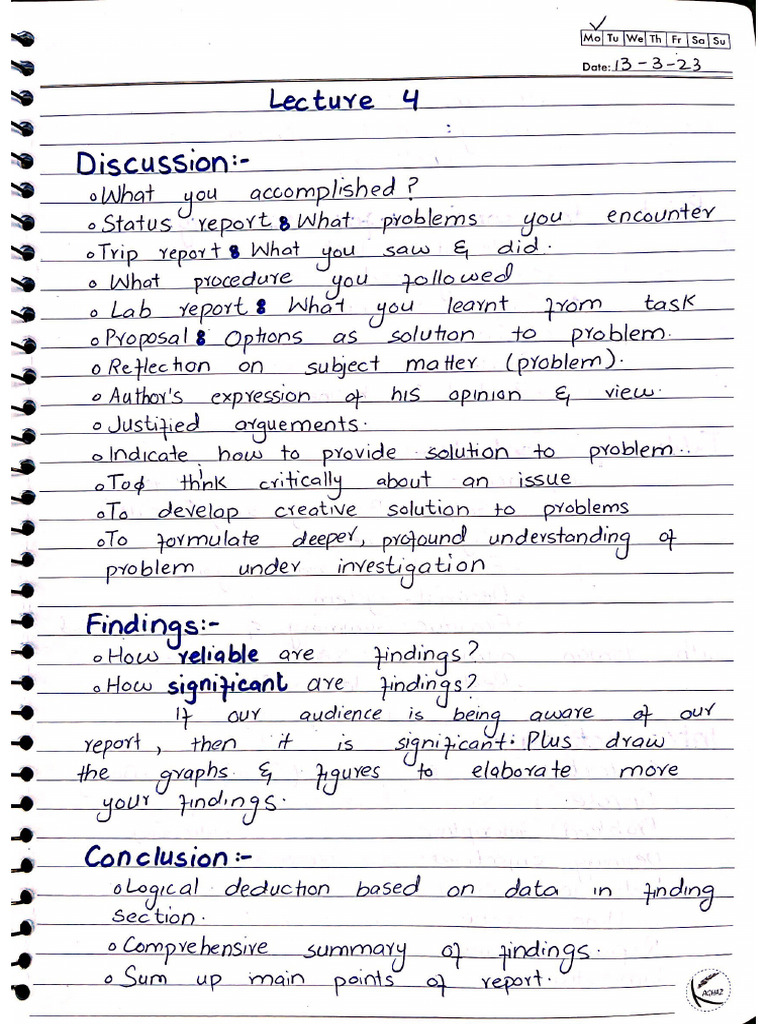 Mo Tu We Th Fr Sa Su
Date: 13-3-23
Lecture 4
Discussion:-
What you accomplished?
Status report: What problems you encounter
Trip report: What you saw & did.
What procedure you followed
Lab report: What you learnt from task
Proposal: Options as solution to problem.
Reflection on subject matter (problem).
Author's expression of his opinion & view.
Justified arguements.
Indicate how to provide solution to problem..
To think critically about an issue
To develop creative solution to problems
To formulate deeper, profound understanding of
problem under investigation
Findings:-
How reliable are findings?
How significant are findings?
If our audience is being aware of our
report, then it is significant. Plus draw
the graphs & figures to elaborate more
your findings.
Conclusion:-
Logical deduction based on data in finding
section.
Comprehensive summary of findings.
Sum up main points of report.